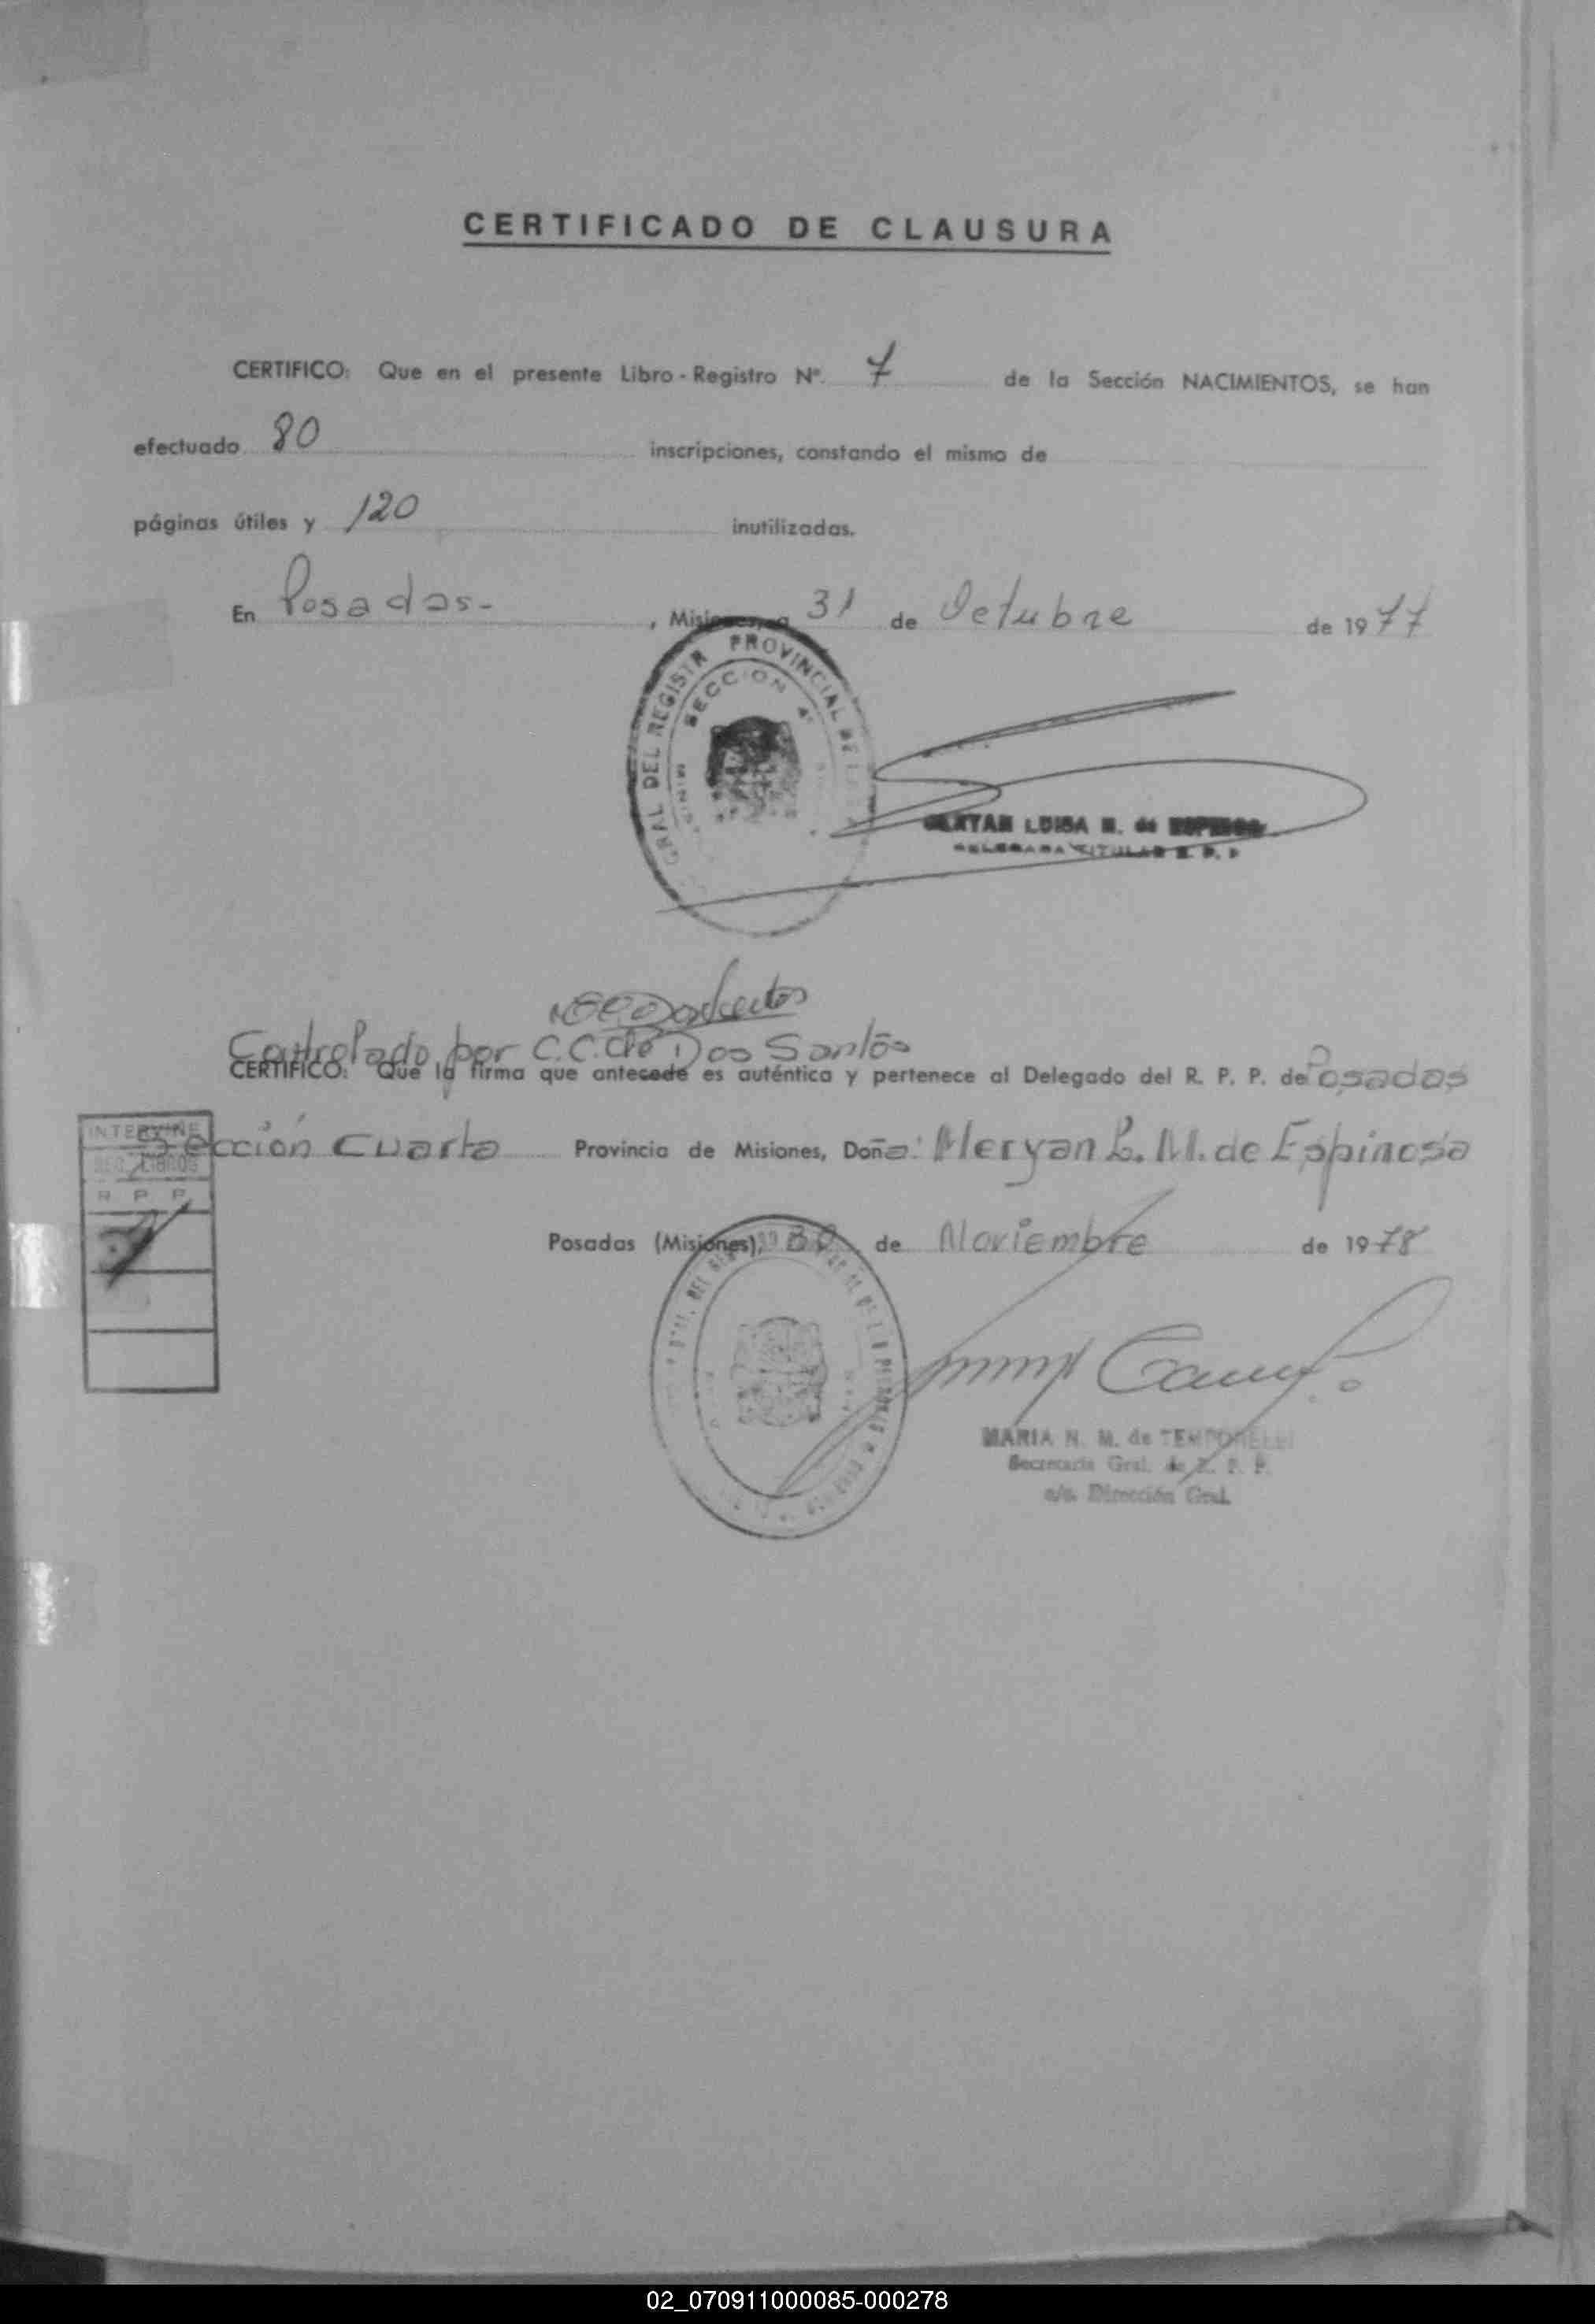 CERTIFICADO DE CLAUSURA
CERTIFICO: Que en el presente Libro-Registro Nº. 7 de la Sección NACIMIENTOS, se han
efectuado 80 inscripciones, constando el mismo de
páginas útiles y 120 inutilizadas.
En Posadas- , Misiones, a 31 de Octubre de 1977
GRAL DEL REGISTR PROVINCIAL DE
SECCION 4ª
LUISA M. de
TITULAR R. P. P
Controlado por C.C. de Dos Santos
CERTIFICO: Que la firma que antecede es auténtica y pertenece al Delegado del R. P. P. de Posadas
INTERVINE
LIBROS
R P P
Sección Cuarta Provincia de Misiones, Doña: Meryan L. M. de Espinosa
Posadas (Misiones), 30 de Noviembre de 1978
MARIA N. M. de TEMPORELLI
Secretaria Gral. de R. P. P.
a/c. Dirección Gral.
02_070911000085-000278